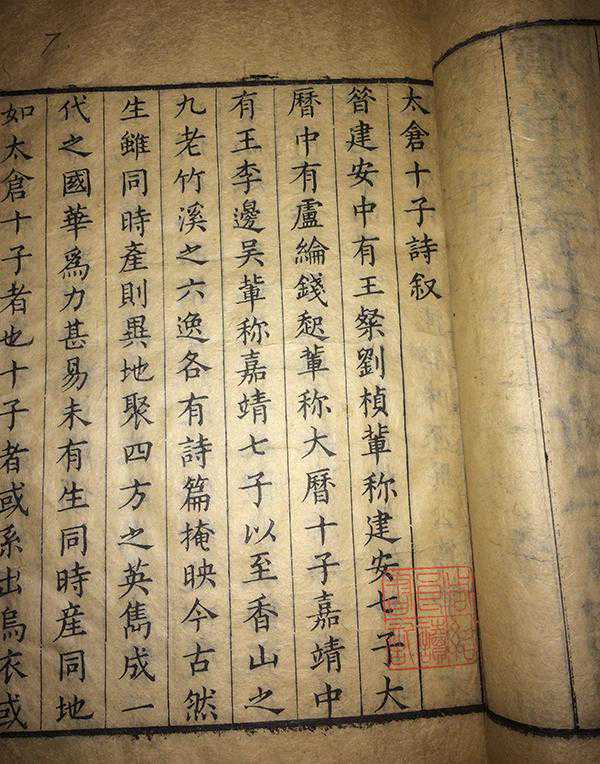 太倉十子詩叙
昝建安中有王粲劉楨軰称建安七子大
曆中有盧綸錢起軰称大曆十子嘉靖中
有王李邊吴軰称嘉靖七子以至香山之
九老竹溪之六逸各有詩篇掩映今古然
生雖同時產則異地聚四方之英雋成一
代之國華爲力甚易未有生同時產同地
如太倉十子者也十子者或系出烏衣或
7